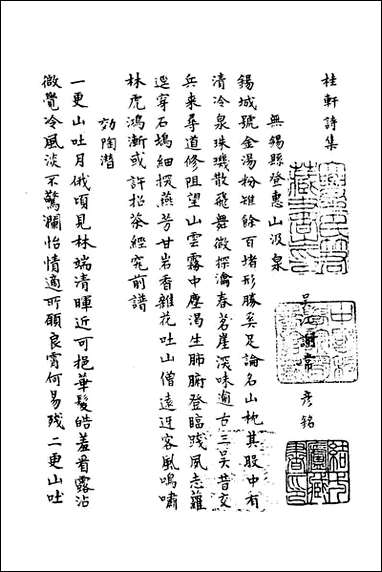 桂軒詩集
吳江謝常彥銘
無錫縣登惠山汲泉
錫城號金湯粉雉餘百堵形勝奚足論名山枕其股中有
清冷泉珠璣散飛舞微探瀹春茗崖深味逾古三吳昔交
兵來尋道修阻望山雲霧中塵渴生肺腑登臨踐夙志蘿
逕穿石塢細掇燕芳甘岩香雜花吐山僧遠迓客風鳴嘯
林虎鴻漸或許招茶經究前譜
効陶潛
一更山吐月俄頃見林端清暉近可挹華髮皓羞看露沾
微覺冷風淡不驚瀾怡情適所願良宵何易殘二更山吐